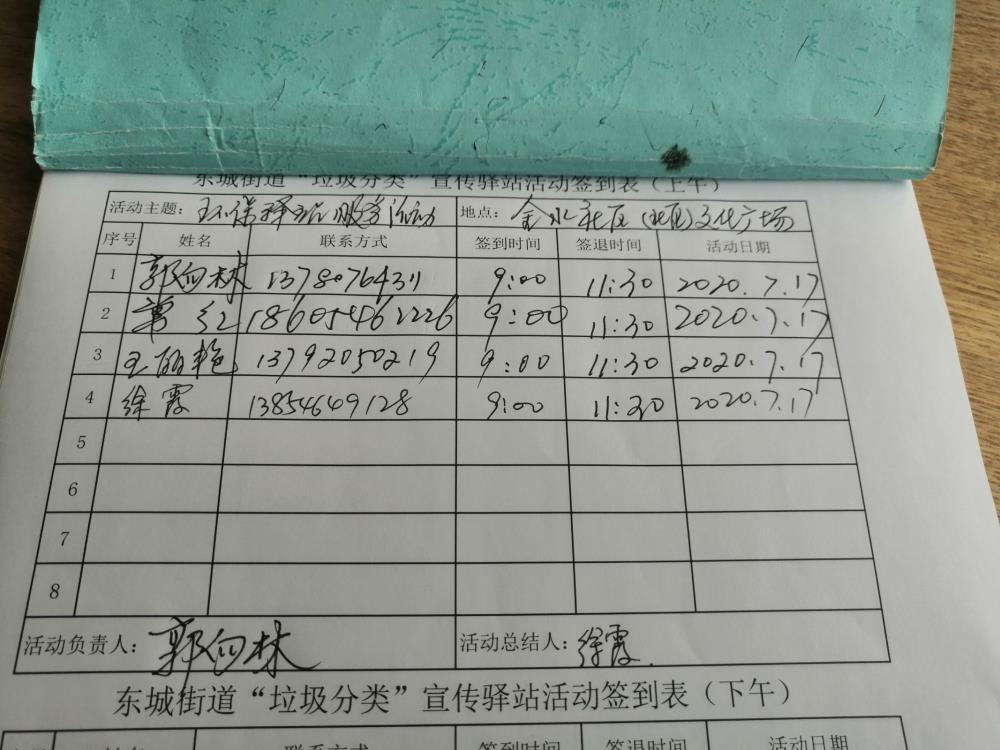 东城街道“垃圾分类”宣传驿站活动签到表（上午）
活动主题：环保驿站服务活动 地点：金水社区（北区）文化广场
序号 姓名 联系方式 签到时间 签退时间 活动日期
1 郭向林 13780764311 9:00 11:30 2020.7.17
2 红 18605462226 9:00 11:30 2020.7.17
3 王丽艳 13792050219 9:00 11:30 2020.7.17
4 徐霞 13854649128 9:00 11:30 2020.7.17
5
6
7
8
活动负责人：郭向林 活动总结人：徐霞
东城街道“垃圾分类”宣传驿站活动签到表（下午）
姓名 联系方式 签到时间 签退时间 活动日期